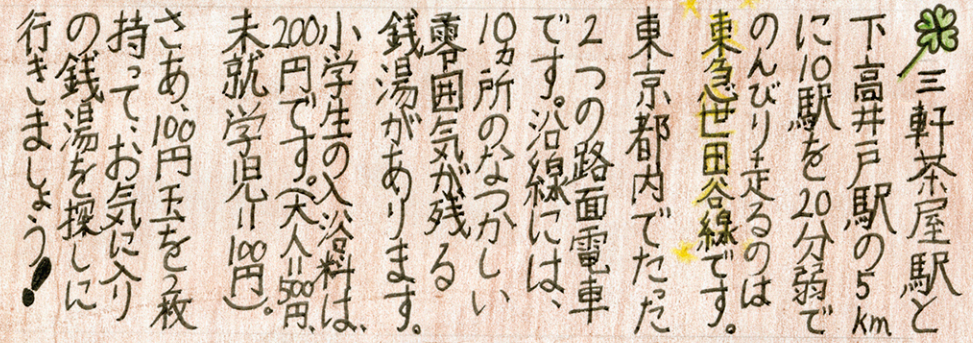 三軒茶屋駅と
下高井戸駅の5km
に10駅を20分弱で
のんびり走るのは
東急世田谷線です。
東京都内でたった
2つの路面電車
です。沿線には、
10ヵ所のなつかしい
雰囲気が残る
銭湯があります。
小学生の入浴料は、
200円です。(大人=500円、
未就学児=100円)。
さあ、100円玉を2枚
持って、お気に入り
の銭湯を探しに
行きましょう!